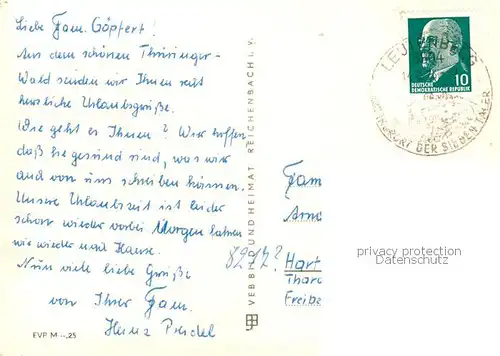 Liebe Fam. Göpfert!
Aus dem schönen Thüringer-
Wald senden wir Ihnen recht
herzliche Urlaubsgrüße.
Wie geht es Ihnen? Wir hoffen
daß Sie gesund sind, was wir
auch von uns schreiben können.
Unsere Urlaubszeit ist leider
schon wieder vorbei Morgen fahren
wir wieder nach Hause.
Nun viele liebe Grüße
von Ihrer Fam.
Heinz
EVP M -,25
VEB BILD UND HEIMAT REICHENBACH I. V.
LEUTENBERG
DER SIEBEN TÄLER
10
DEUTSCHE
DEMOKRATISCHE REPUBLIK
Fam
Hart
Thara
Freibe
privacy protection
Datenschutz